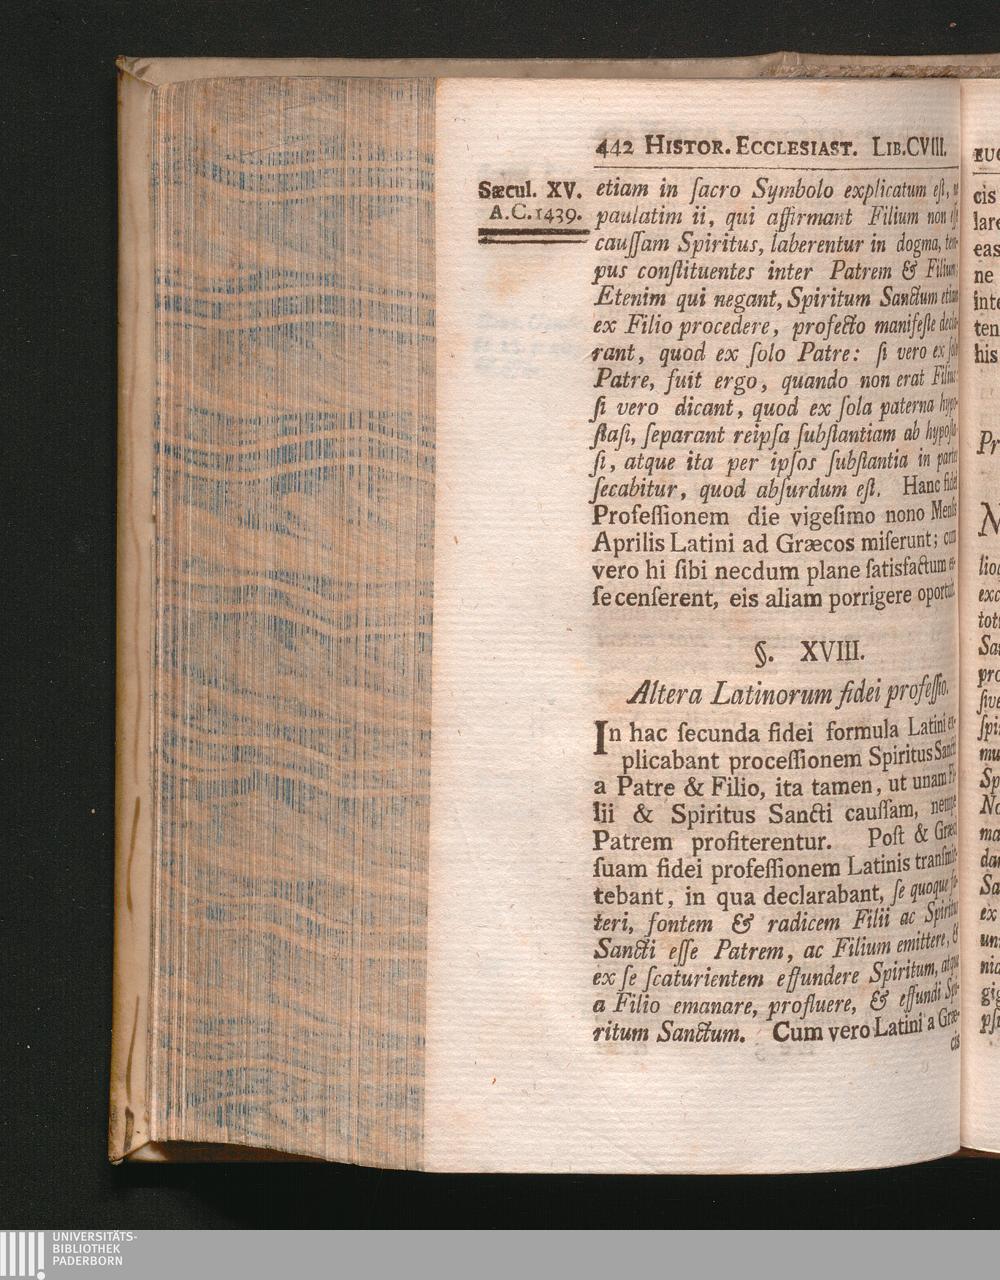 442 HISTOR. ECCLESIAST. LIB.CVIII.
Sæcul. XV.
A.C.1439.
etiam in ſacro Symbolo explicatum eſt,
paulatim ii, qui affirmant Filium non
cauſſam Spiritus, laberentur in dogma, tem-
pus conſtituentes inter Patrem & Filium:
Etenim qui negant, Spiritum Sanctum etiam
ex Filio procedere, profecto manifeſte decla-
rant, quod ex ſolo Patre: ſi vero ex ſolo
Patre, fuit ergo, quando non erat Filius:
ſi vero dicant, quod ex ſola paterna hypo-
ſtaſi, ſeparant reipſa ſubſtantiam ab hypoſta-
ſi, atque ita per ipſos ſubſtantia in partes
ſecabitur, quod abſurdum eſt. Hanc fidei
Profeſſionem die vigeſimo nono Menſis
Aprilis Latini ad Græcos miſerunt; cum
vero hi ſibi necdum plane ſatisfactum eſ-
ſe cenſerent, eis aliam porrigere oportuit.
§. XVIII.
Altera Latinorum fidei profeſſio.
In hac ſecunda fidei formula Latini ex-
plicabant proceſſionem Spiritus Sancti
a Patre & Filio, ita tamen, ut unam Fi-
lii & Spiritus Sancti cauſſam, nempe
Patrem profiterentur. Poſt & Græci
ſuam fidei profeſſionem Latinis tranſmit-
tebant, in qua declarabant, ſe quoque fa-
teri, fontem & radicem Filii ac Spiritus
Sancti eſſe Patrem, ac Filium emittere, &
ex ſe ſcaturientem effundere Spiritum, atque
a Filio emanare, profluere, & effundi Spi-
ritum Sanctum. Cum vero Latini a Græ-
cis
cis
ne
his
Sp
ex
UNIVERSITÄTS-
BIBLIOTHEK
PADERBORN